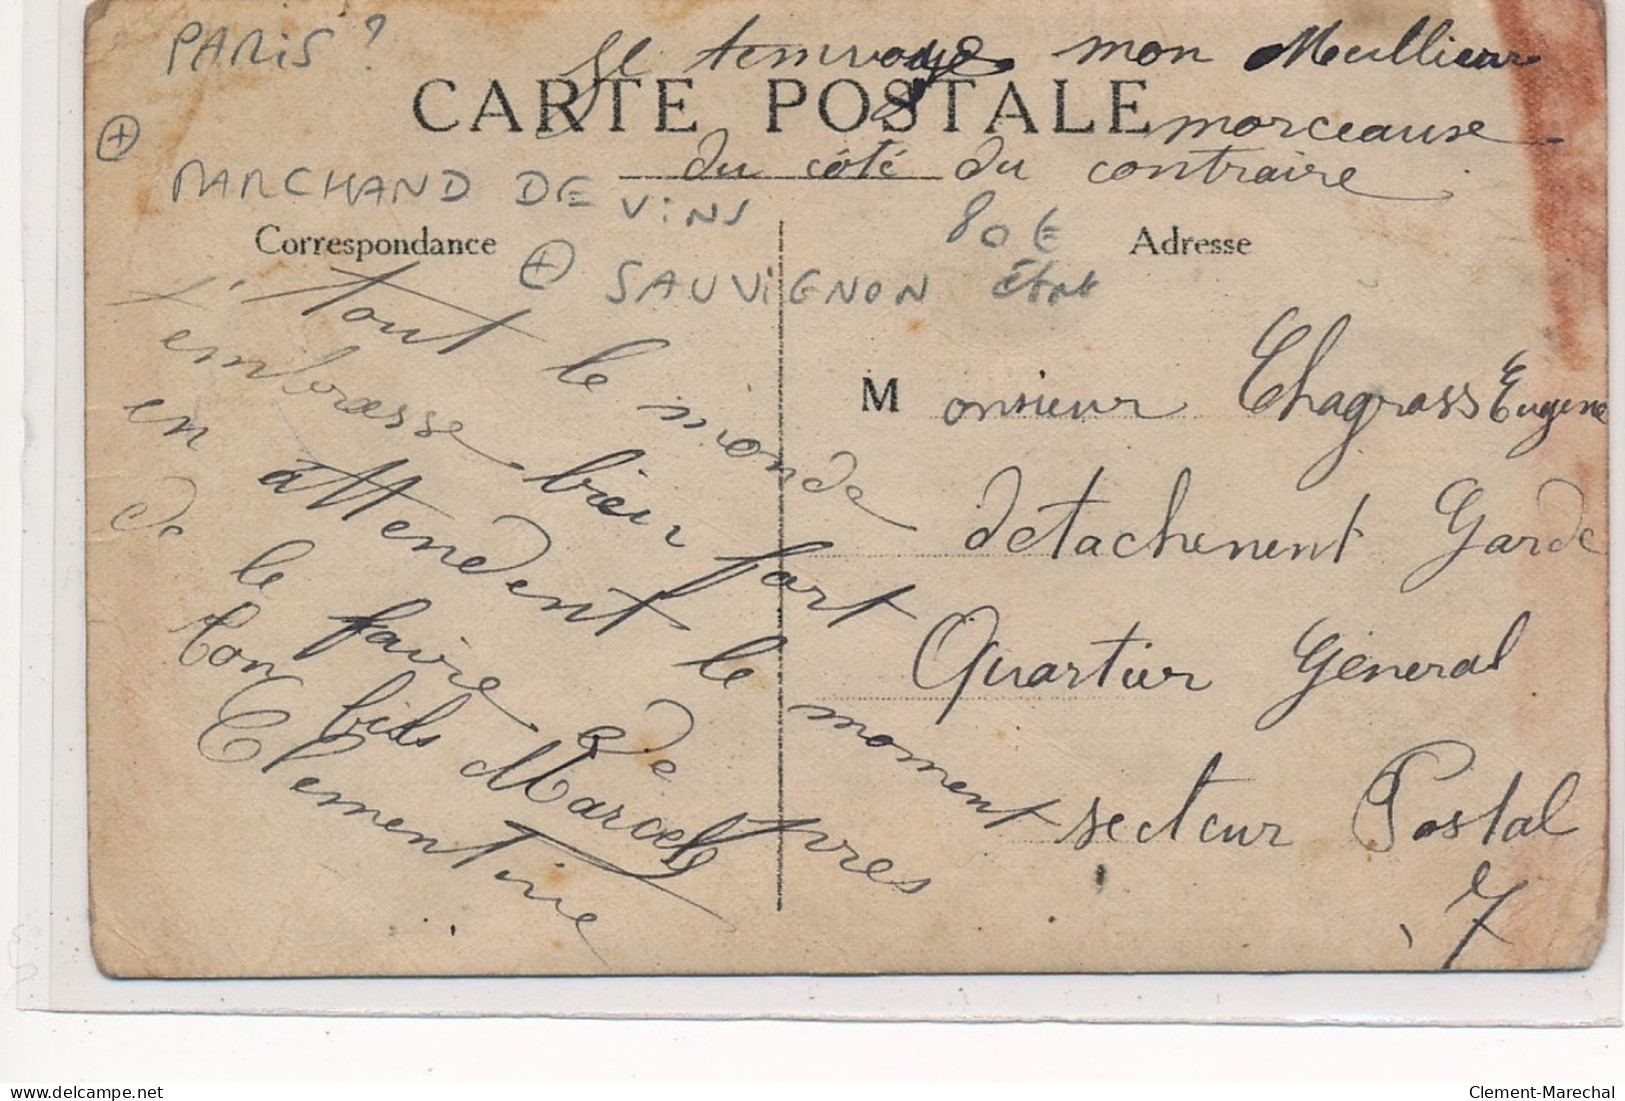 PARIS ?
Je temvoye mon Meillieur
CARTE POSTALE
morceause
du côté du contraire
MARCHAND DE VINS
80€
Correspondance
Adresse
SAUVIGNON état
tout le monde
t'embrasse bien fort
en attendent le moment
de le faire de près
Ton fils Marcel
Clementine
Monsieur Chagrass Eugene
détachement Garde
Quartier General
secteur Postal
7
Clement-Marechal